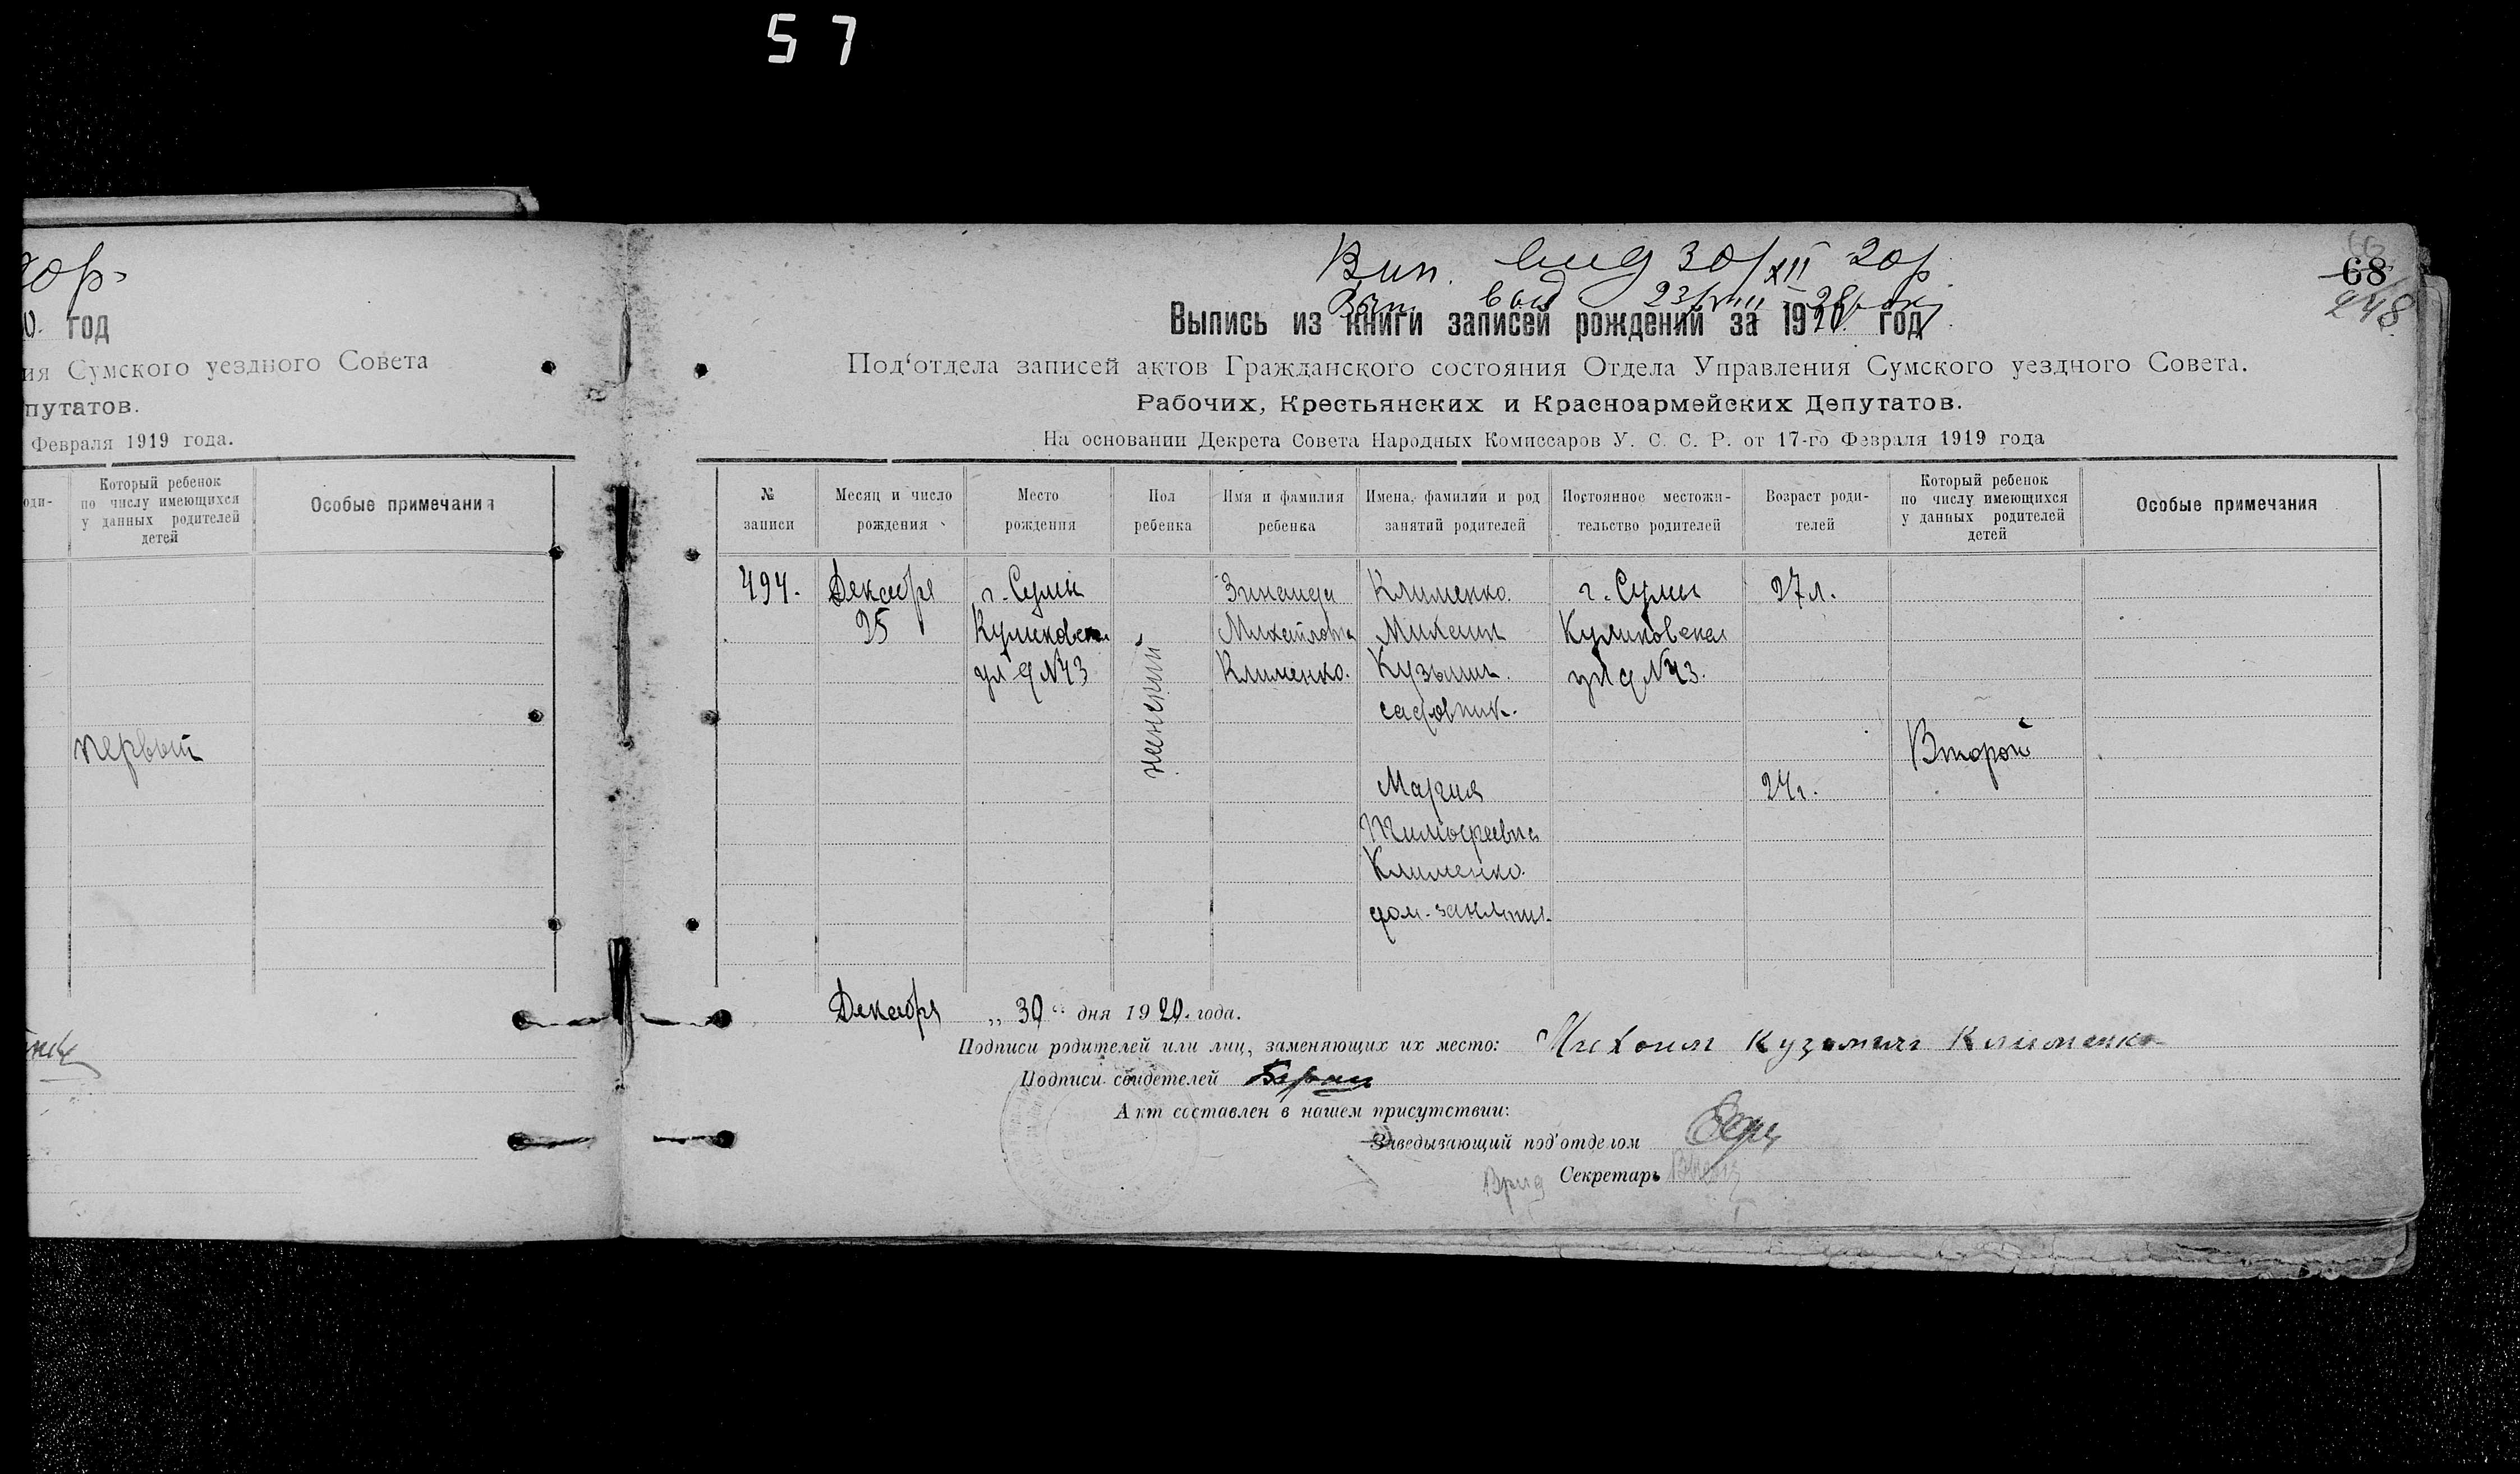 57
20р.
0. год
ия Сумского уездного Совета
путатов.
Февраля 1919 года.
оди-
Который ребенок
по числу имеющихся
у данных родителей
детей
Особые примечания
первый
Вип. вид 30/XII 20р.
Вып. выд 23/VIII
68
248
Выпись из книги записей рождений за 1920 год
Под‘отдела записей актов Гражданского состояния Отдела Управления Сумского уездного Совета.
Рабочих, Крестьянских и Красноармейских Депутатов.
На основании Декрета Совета Народных Комиссаров У. С. С. Р. от 17-го Февраля 1919 года
№
записи
Месяц и число
рождения
Место
рождения
Пол
ребенка
Имя и фамилия
ребенка
Имена, фамилии и род
занятий родителей
Постоянное местожи-
тельство родителей
Возраст роди-
телей
Который ребенок
по числу имеющихся
у данных родителей
детей
Особые примечания
494.
Декабря
25
г. Сумы
Куликовская
ул д N43
женский
Зинаида
Михайловна
Клименко.
Клименко.
Михаил
Кузьмич.
садовник.
Мария
Тимофеевна
Клименко.
дом. занятия.
г. Сумы
Куликовская
ул д N43.
27 л.
24 г.
Второй
Декабря „30“ дня 1920. года.
Подписи родителей или лиц, заменяющих их место: Михоил Кузьмич Клименко
Подписи свидетелей
Акт составлен в нашем присутствии:
Заведывающий под‘отделом
Врид Секретарь